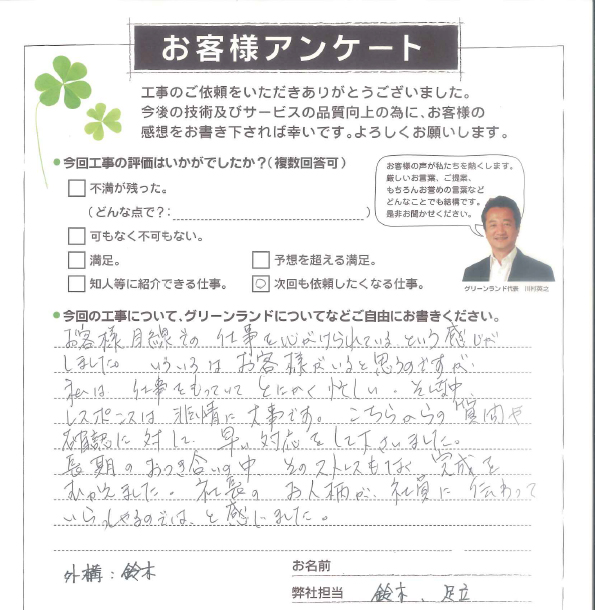 お客様アンケート
工事のご依頼をいただきありがとうございました。
今後の技術及びサービスの品質向上の為に、お客様の
感想をお書き下されば幸いです。よろしくお願いします。
●今回工事の評価はいかがでしたか?(複数回答可)
不満が残った。
(どんな点で?: )
可もなく不可もない。
満足。
予想を超える満足。
知人等に紹介できる仕事。
○ 次回も依頼したくなる仕事。
お客様の声が私たちを熱くします。
厳しいお言葉、ご提案、
もちろんお誉めの言葉など
どんなことでも結構です。
是非お聞かせください。
グリーンランド代表 川村英之
●今回の工事について、グリーンランドについてなどご自由にお書きください。
お客様目線での仕事を心がけられているという感じが
しました。いろいろなお客様がいると思うのですが、
私は仕事をもっていてとにかく忙しい。そんな中
レスポンスは非常に大事です。こちらからの質問や
確認に対して、早い対応をして下さいました。
長期のおつき合いの中 そのストレスもなく 完成を
むかえました。社長のお人柄が、社員に伝わって
いらっしゃるのでは、と感じました。
外構:鈴木
お名前
弊社担当 鈴木、足立